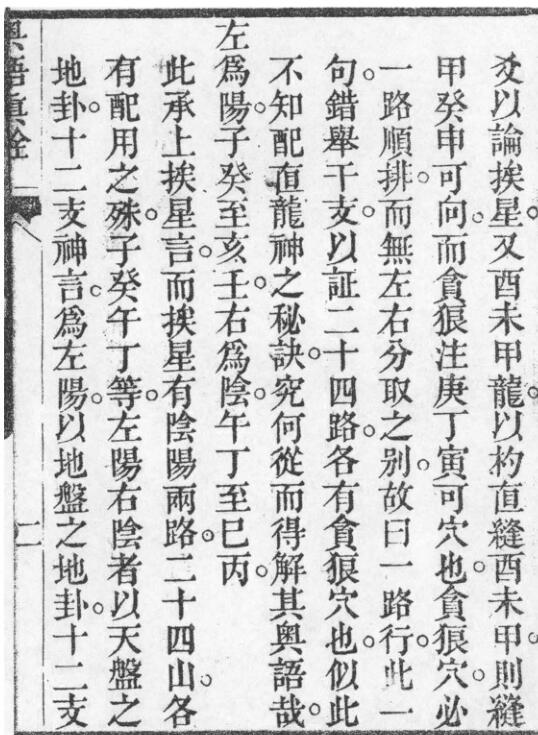 爻以論挨星。又酉未甲龍。以杓直縫酉未甲則縫
甲癸申可向。而貪狼注庚丁寅可穴也。貪狼穴。必
一路順排。而無左右分取之別。故曰一路行。此一
句。錯舉干支。以証二十四路。各有貪狼穴也。似此
不知配直龍神之秘訣。究何從而得解其奧語哉。
左爲陽子癸至亥壬。右爲陰。午丁至巳丙。
此承上挨星言。而挨星有陰陽兩路。二十四山。各
有配用之殊。子癸午丁等。左陽右陰者。以天盤之
地卦。十二支神言。爲左陽。以地盤之地卦。十二支
奧語真詮
二